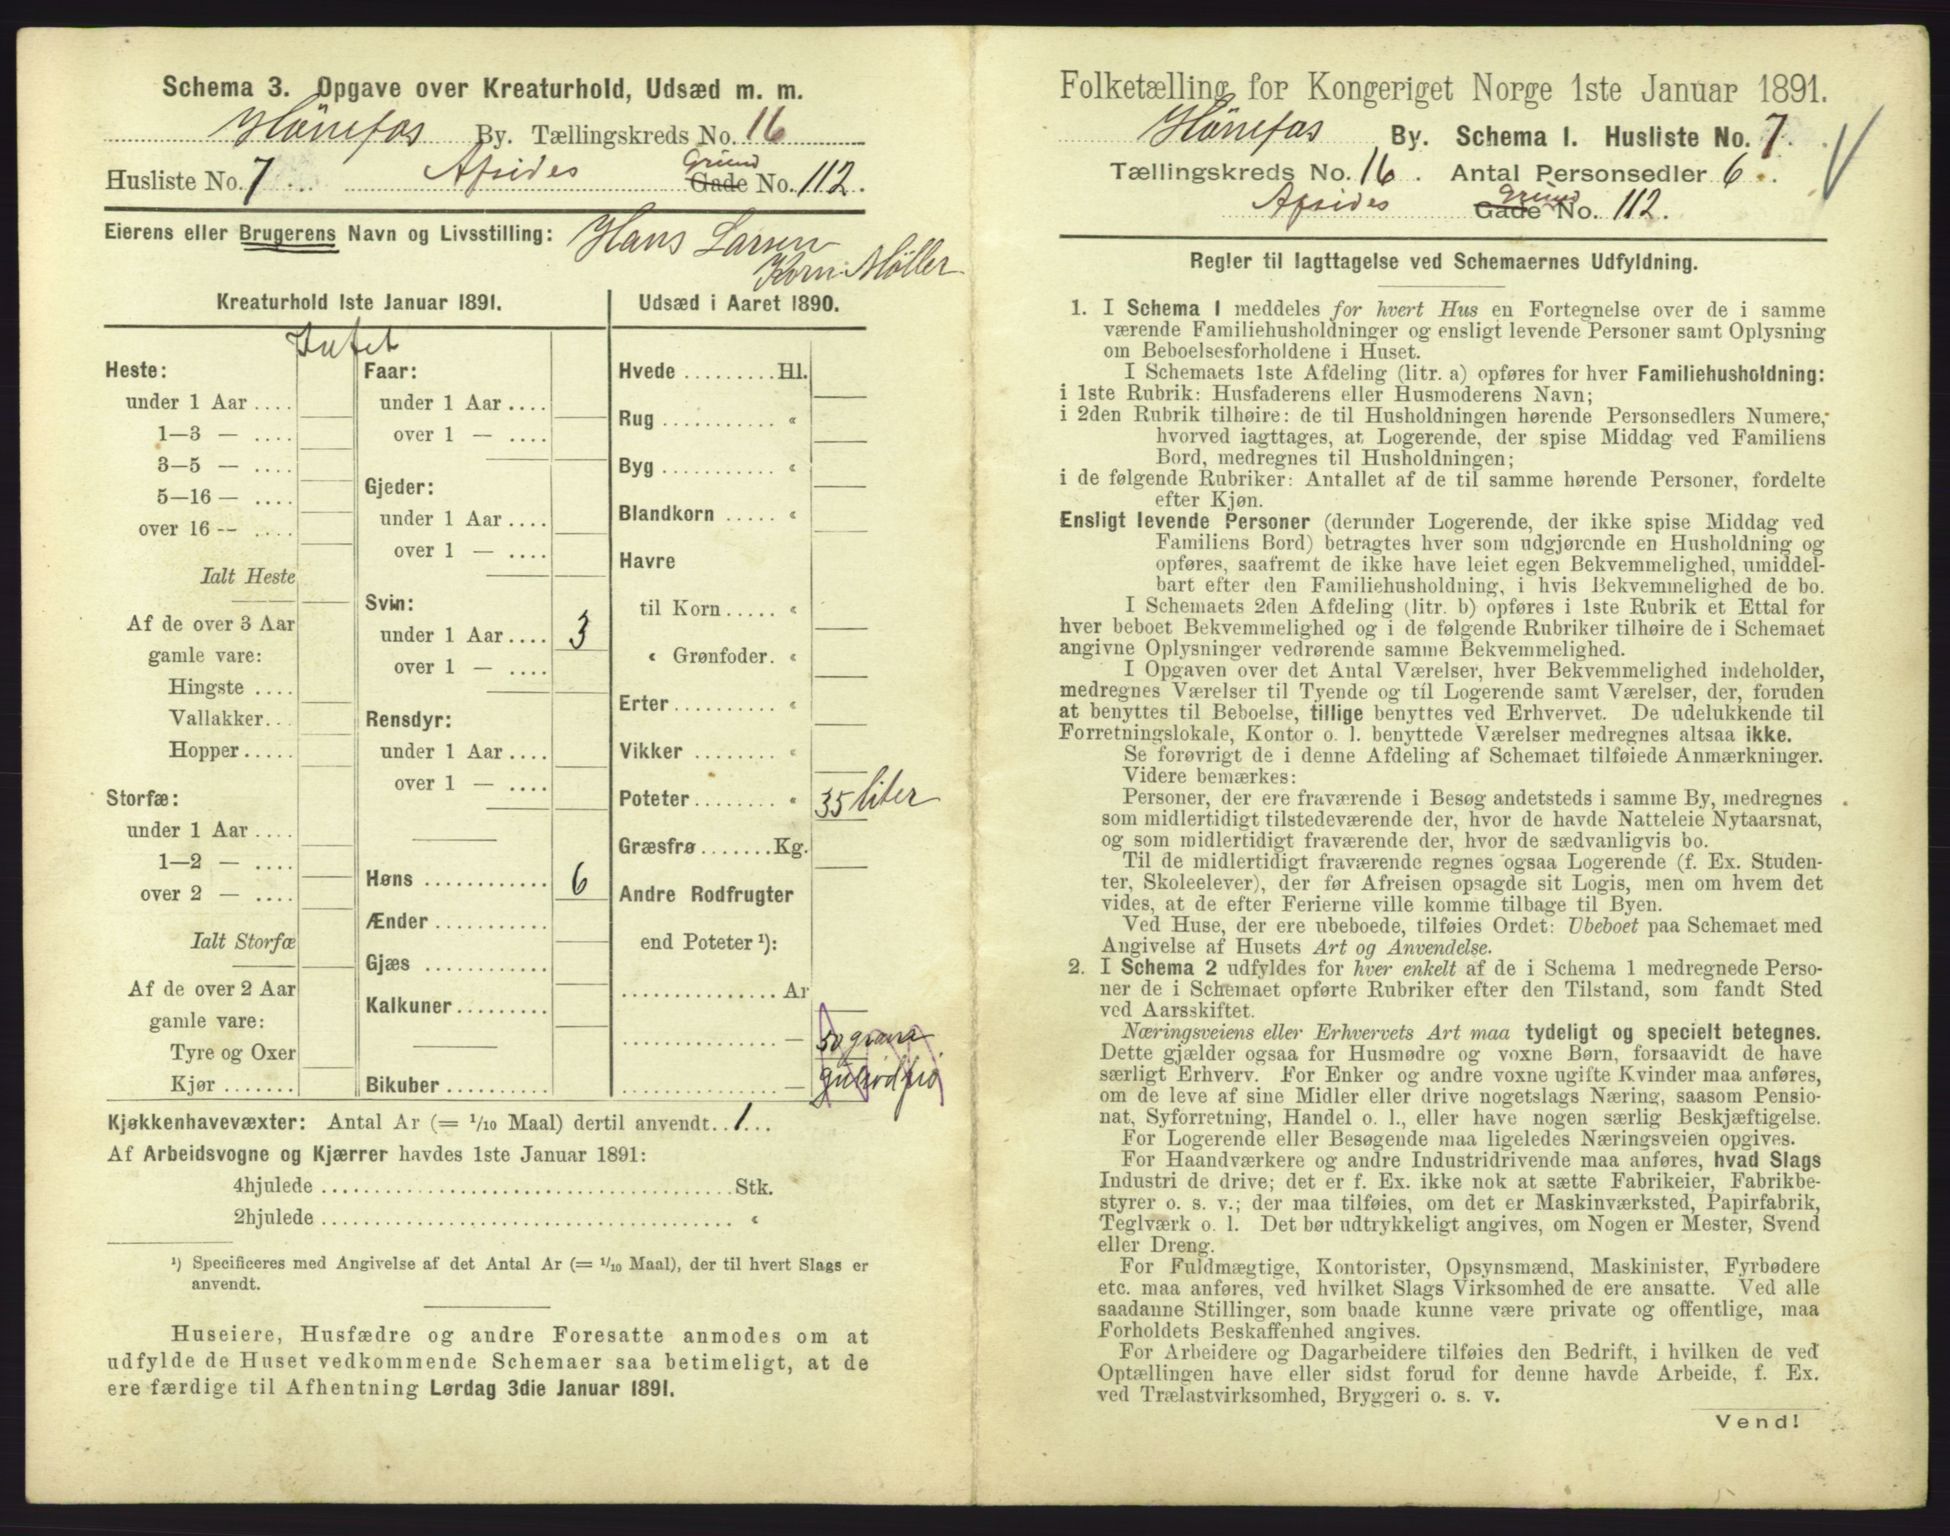 Schema 3. Opgave over Kreaturhold, Udsæd m. m.
Hönefos By. Tællingskreds No. 16
Husliste No. 7 Afsides Grund Gade No. 112.
Eierens eller Brugerens Navn og Livsstilling: Hans Larsen
Korn Möller
Kreaturhold 1ste Januar 1891.
Intet
Heste:
under 1 Aar ....
1—3 — ....
3—5 — ....
5—16 — ....
over 16 — ....
Ialt Heste
Af de over 3 Aar
gamle vare:
Hingste ....
Vallakker...
Hopper.....
Storfæ:
under 1 Aar ....
1—2 — ....
over 2 — ....
Ialt Storfæ
Af de over 2 Aar
gamle vare:
Tyre og Oxer
Kjør ......
Faar:
under 1 Aar ....
over 1 — ....
Gjeder:
under 1 Aar ....
over 1 — ....
Svin:
under 1 Aar .... 3
over 1 — ....
Rensdyr:
under 1 Aar ....
over 1 — ....
Høns ............ 6
Ænder ...........
Gjæs ............
Kalkuner .........
Bikuber ..........
Udsæd i Aaret 1890.
Hvede ......... Hl.
Rug ............ «
Byg ............ «
Blandkorn ..... «
Havre
til Korn ..... «
« Grønfoder. «
Erter........... «
Vikker ........ «
Poteter........ « 35 liter
Græsfrø....... Kg.
Andre Rodfrugter
end Poteter ¹):
............... Ar
............... — 50 gram
............... —
Kjøkkenhavevæxter: Antal Ar (= 1/10 Maal) dertil anvendt.. 1...
Af Arbeidsvogne og Kjærrer havdes 1ste Januar 1891:
4hjulede ........................................ Stk.
2hjulede ........................................ «
¹) Specificeres med Angivelse af det Antal Ar (= 1/10 Maal), der til hvert Slags er
anvendt.
Huseiere, Husfædre og andre Foresatte anmodes om at
udfylde de Huset vedkommende Schemaer saa betimeligt, at de
ere færdige til Afhentning Lørdag 3die Januar 1891.
Folketælling for Kongeriget Norge 1ste Januar 1891.
Hönefos By. Schema 1. Husliste No. 7
Tællingskreds No. 16. Antal Personsedler 6.
Afsides Grund Gade No. 112.
Regler til Iagttagelse ved Schemaernes Udfyldning.
1. I Schema 1 meddeles for hvert Hus en Fortegnelse over de i samme
værende Familiehusholdninger og ensligt levende Personer samt Oplysning
om Beboelsesforholdene i Huset.
I Schemaets 1ste Afdeling (litr. a) opføres for hver Familiehusholdning:
i 1ste Rubrik: Husfaderens eller Husmoderens Navn;
i 2den Rubrik tilhøire: de til Husholdningen hørende Personsedlers Numere,
hvorved iagttages, at Logerende, der spise Middag ved Familiens
Bord, medregnes til Husholdningen;
i de følgende Rubriker: Antallet af de til samme hørende Personer, fordelte
efter Kjøn.
Ensligt levende Personer (derunder Logerende, der ikke spise Middag ved
Familiens Bord) betragtes hver som udgjørende en Husholdning og
opføres, saafremt de ikke have leiet egen Bekvemmelighed, umiddel-
bart efter den Familiehusholdning, i hvis Bekvemmelighed de bo.
I Schemaets 2den Afdeling (litr. b) opføres i 1ste Rubrik et Ettal for
hver beboet Bekvemmelighed og i de følgende Rubriker tilhøire de i Schemaet
angivne Oplysninger vedrørende samme Bekvemmelighed.
I Opgaven over det Antal Værelser, hver Bekvemmelighed indeholder,
medregnes Værelser til Tyende og til Logerende samt Værelser, der, foruden
at benyttes til Beboelse, tillige benyttes ved Erhvervet. De udelukkende til
Forretningslokale, Kontor o. l. benyttede Værelser medregnes altsaa ikke.
Se forøvrigt de i denne Afdeling af Schemaet tilføiede Anmærkninger.
Videre bemærkes:
Personer, der ere fraværende i Besøg andetsteds i samme By, medregnes
som midlertidigt tilstedeværende der, hvor de havde Natteleie Nytaarsnat,
og som midlertidigt fraværende der, hvor de sædvanligvis bo.
Til de midlertidigt fraværende regnes ogsaa Logerende (f. Ex. Studen-
ter, Skoleelever), der før Afreisen opsagde sit Logis, men om hvem det
vides, at de efter Ferierne ville komme tilbage til Byen.
Ved Huse, der ere ubeboede, tilføies Ordet: Ubeboet paa Schemaet med
Angivelse af Husets Art og Anvendelse.
2. I Schema 2 udfyldes for hver enkelt af de i Schema 1 medregnede Perso-
ner de i Schemaet opførte Rubriker efter den Tilstand, som fandt Sted
ved Aarsskiftet.
Næringsveiens eller Erhvervets Art maa tydeligt og specielt betegnes.
Dette gjælder ogsaa for Husmødre og voxne Børn, forsaavidt de have
særligt Erhverv. For Enker og andre voxne ugifte Kvinder maa anføres,
om de leve af sine Midler eller drive nogetslags Næring, saasom Pensio-
nat, Syforretning, Handel o. l., eller have nogen særlig Beskjæftigelse.
For Logerende eller Besøgende maa ligeledes Næringsveien opgives.
For Haandværkere og andre Industridrivende maa anføres, hvad Slags
Industri de drive; det er f. Ex. ikke nok at sætte Fabrikeier, Fabrikbe-
styrer o. s. v.; der maa tilføies, om det er Maskinværksted, Papirfabrik,
Teglværk o. l. Det bør udtrykkeligt angives, om Nogen er Mester, Svend
eller Dreng.
For Fuldmægtige, Kontorister, Opsynsmænd, Maskinister, Fyrbødere
etc. maa anføres, ved hvilket Slags Virksomhed de ere ansatte. Ved alle
saadanne Stillinger, som baade kunne være private og offentlige, maa
Forholdets Beskaffenhed angives.
For Arbeidere og Dagarbeidere tilføies den Bedrift, i hvilken de ved
Optællingen have eller sidst forud for denne havde Arbeide, f. Ex.
ved Trælastvirksomhed, Bryggeri o. s. v.
Vend!